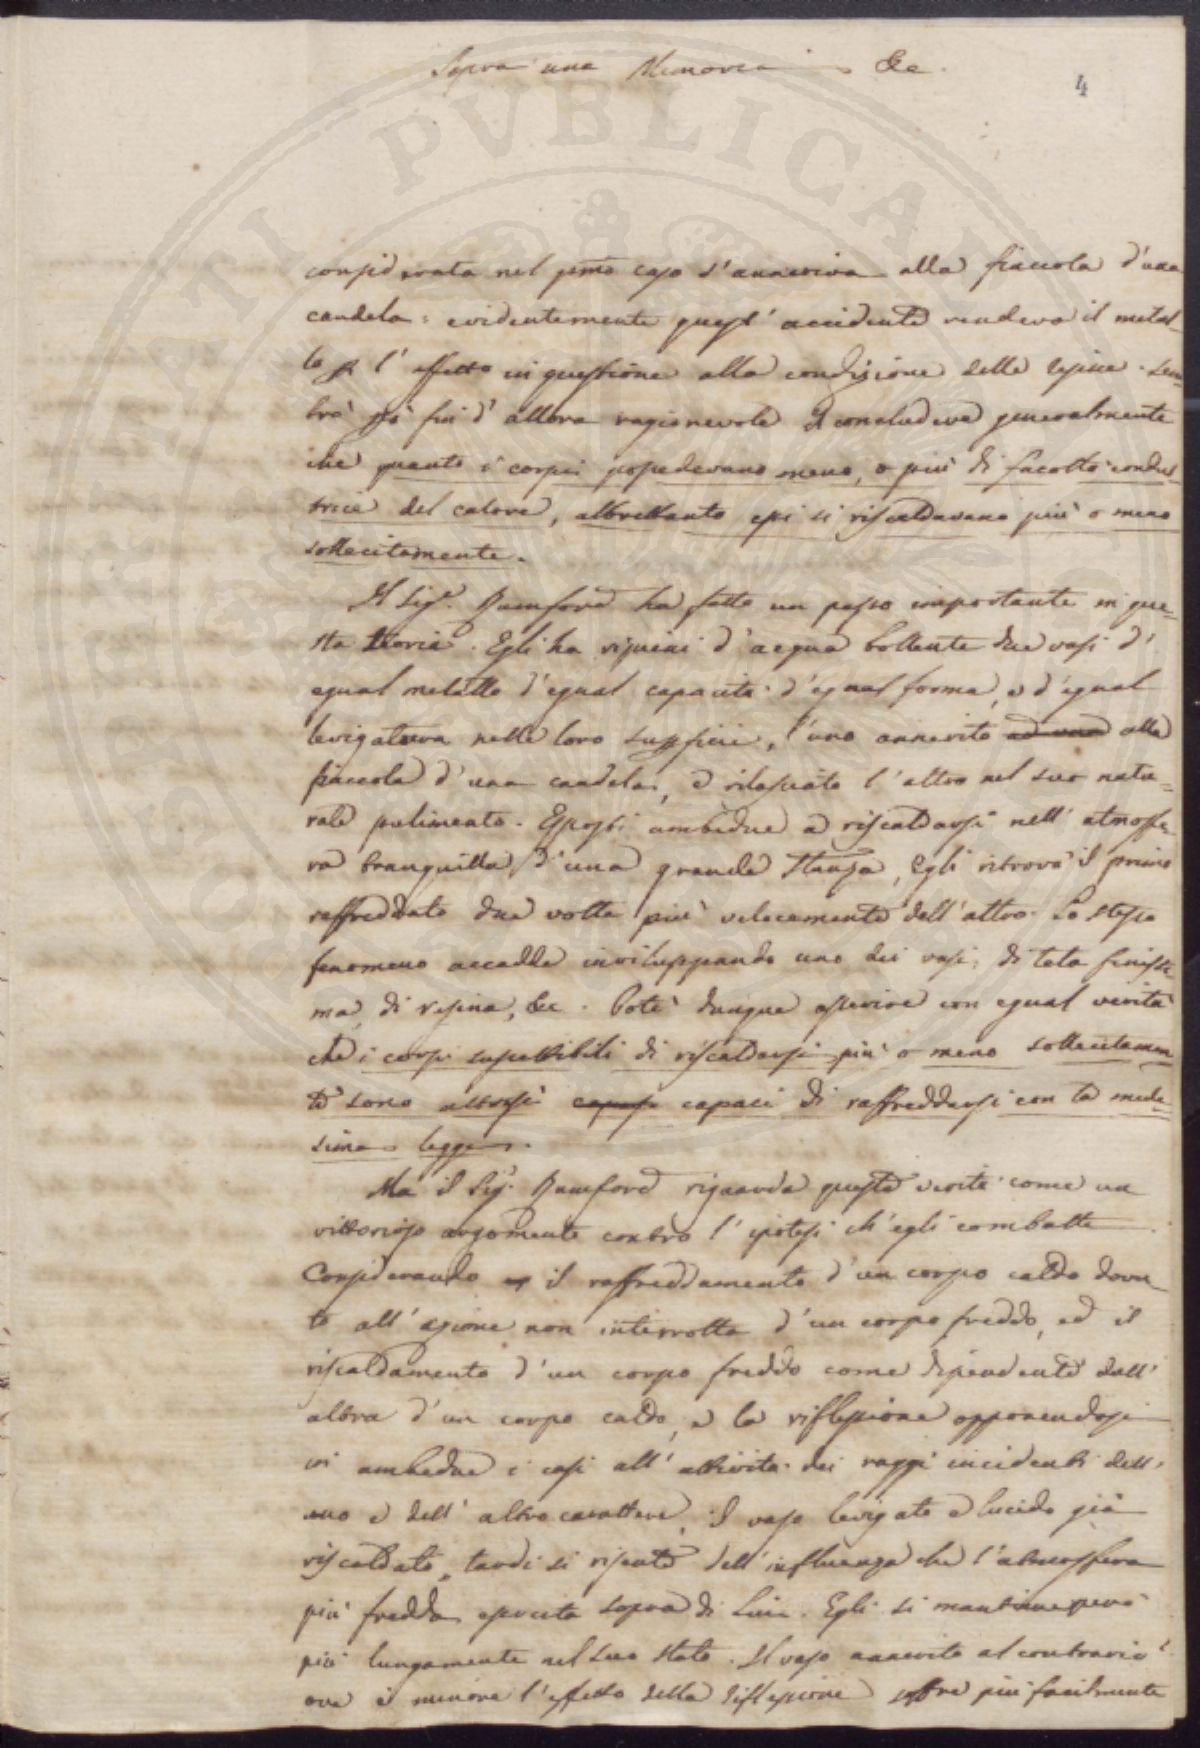 Sopra una Memoria &c.
4
considerata nel pmo caso s'anneriva alla fiaccola d'una
candela: evidentemente quest' accidente rendeva il metal-
lo p l' effetto in questione alla condizione delle resine. Sem-
brò già fin d' allora ragionevole il concludere generalmente
che quanto i corpi possedevano meno, o più di facoltà condut-
trice del calore, altrettanto essi si riscaldavano più o meno
sollecitamente.
Il Sigr. Rumford ha fatto un passo importante in que-
sta teoria. Egli ha ripieni d'acqua bollente due vasi d'
egual metallo d'egual capacità d'egual forma, e d'egual
levigatura nelle loro superficie, l'uno annerito ad una alla
fiaccola d'una candela, e rilasciato l'altro nel suo natu-
rale pulimento. Esposti ambedue a riscaldarsi nell' atmosfe-
ra tranquilla d'una grande stanza, Egli ritrovò il primo
raffreddato due volte più velocemente dell'altro. Lo stesso
fenomeno accadde inviluppando uno dei vasi di tela finissi-
ma, di resina, &c. Potè dunque asserire con egual verità
che i corpi suscettibili di riscaldarsi più o meno sollecitamen-
te sono altresì capaci di raffreddarsi con la mede-
sima legge.
Ma il Sigr. Rumford riguarda queste verità come un
vittorioso argomento contro l' ipotesi ch'egli combatte
Considerando il raffreddamento d'un corpo caldo dovu-
to all' azione non interrotta d'un corpo freddo, ed il
riscaldamento d'un corpo freddo come dipendente dall'
altra d'un corpo caldo, e la riflessione opponendosi
in ambedue i casi all' attività dei raggi incidenti dell'
uno e dell' altro carattere, il vaso levigato e lucido già
riscaldato, tardi si risente dell' influenza che l'atmosfera
più fredda esercita sopra di lui. Egli si mantiene però
più lungamente nel suo stato. Il vaso annerito al contrario
ove è minore l'effetto della riflessione soffre più facilmente